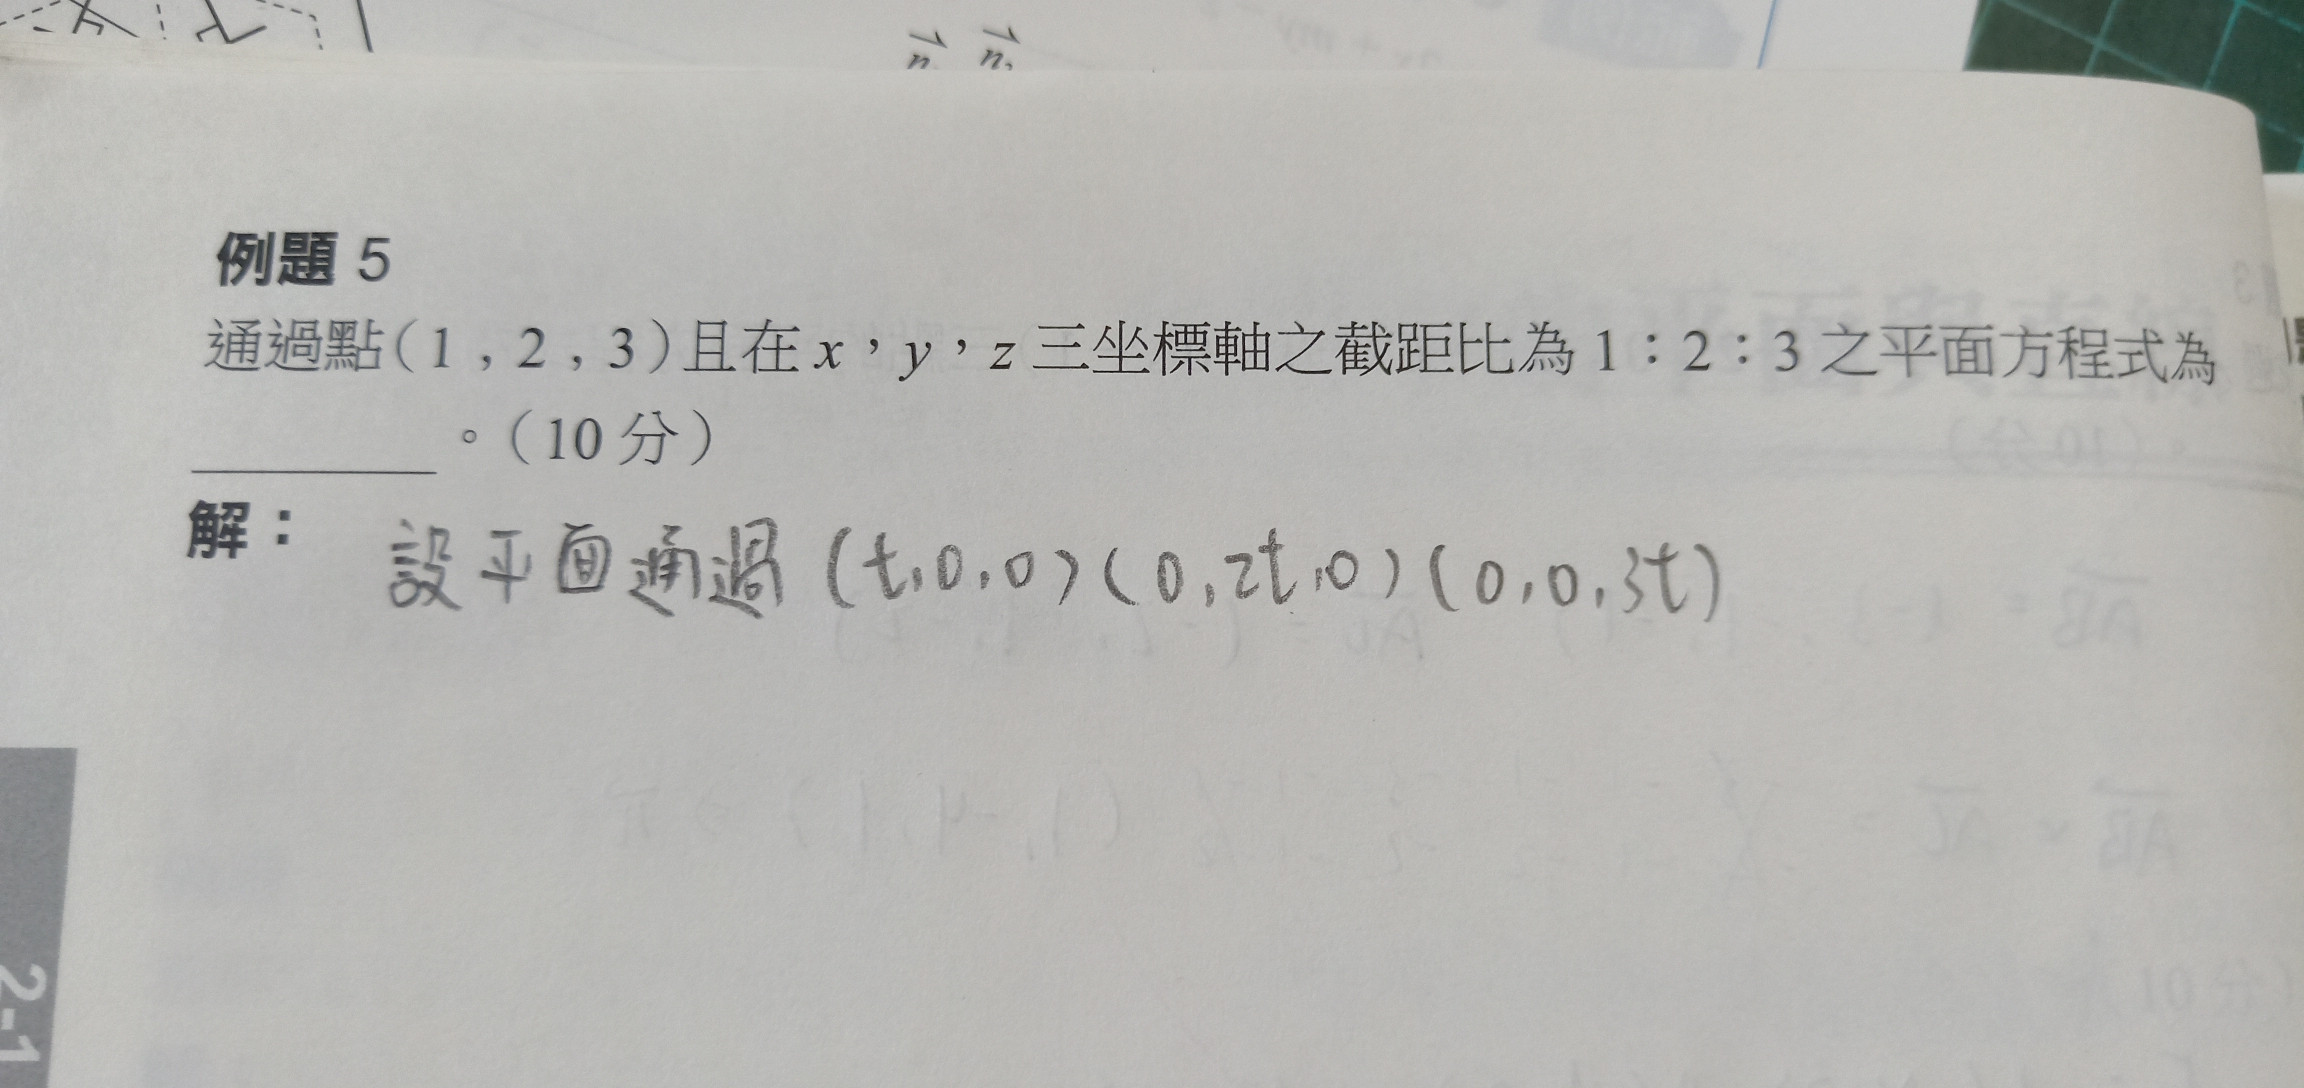 n n₂
例題 5
通過點(1 , 2 , 3)且在 x，y，z 三坐標軸之截距比為 1：2：3 之平面方程式為
______。(10 分)
解： 設平面通過 (t,0,0)(0,2t,0)(0,0,3t)
2-1